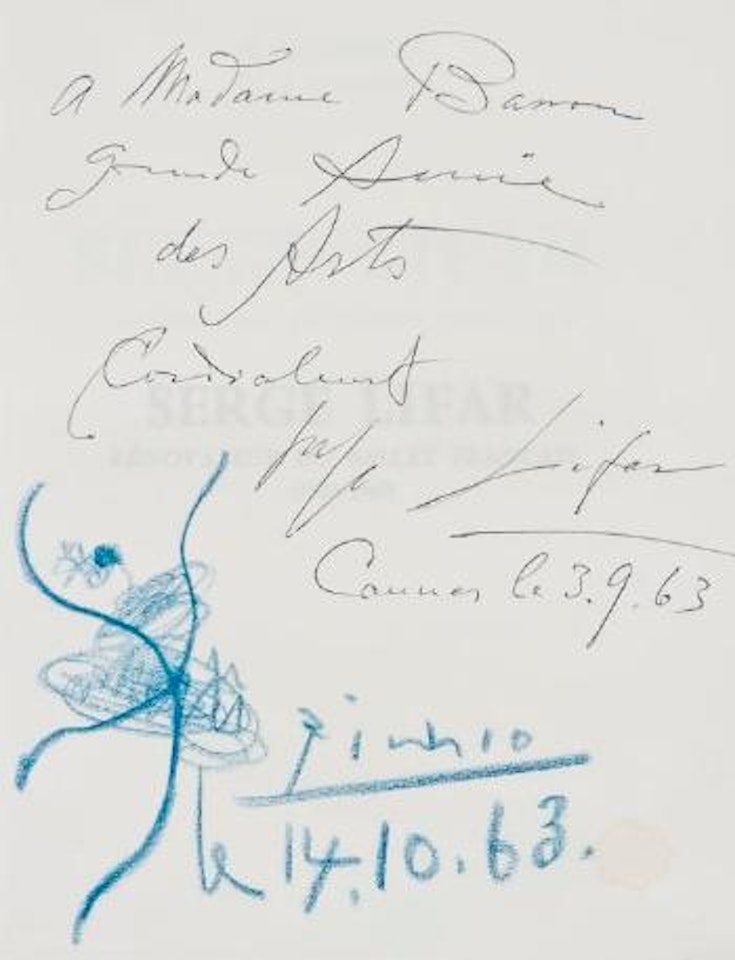 a Madame Barron
grande Amie
des Arts
Cordialement
Serge Lifar
Cannes le 3.9.63
SERGE LIFAR
Picasso
le 14.10.63.